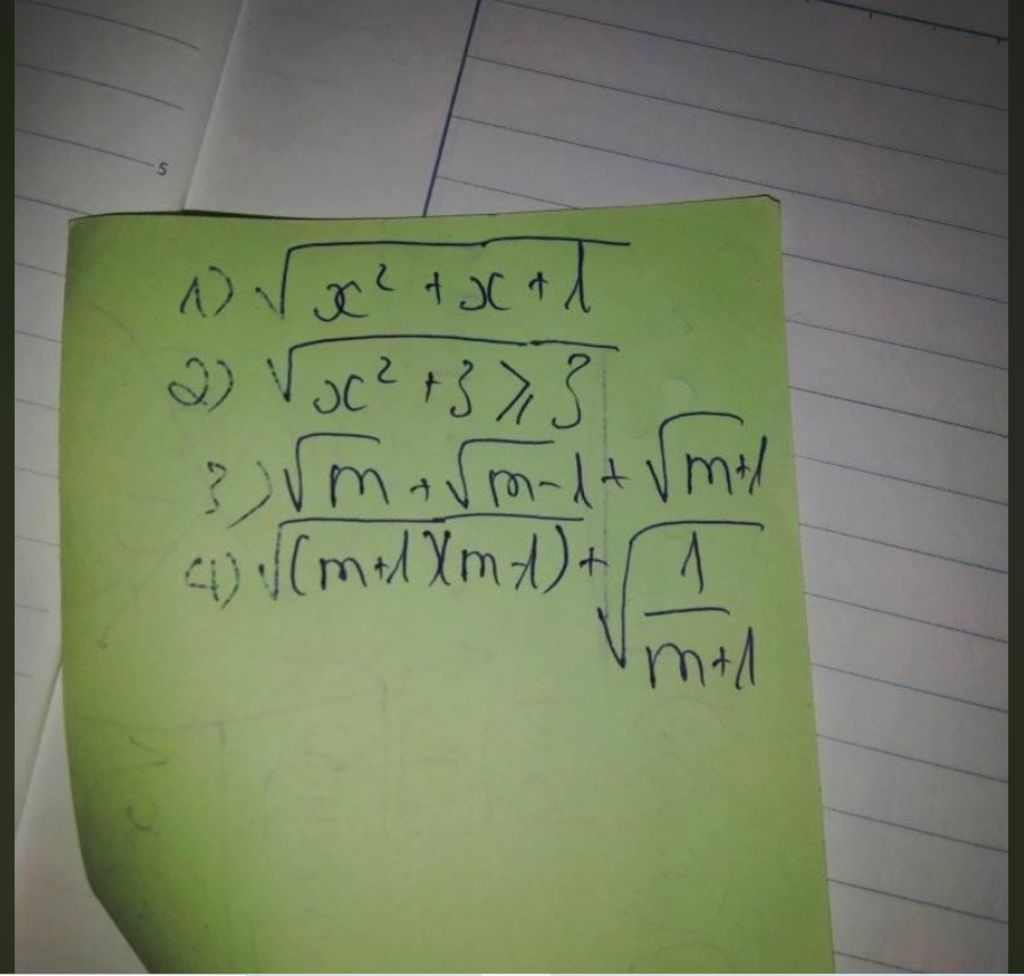 5
1) √(x² + x + 1)
2) √(x² + 3 ⩾ 3)
3) √m + √m-1 + √m+1
4) √((m+1)(m-1)) + √(1/(m+1))